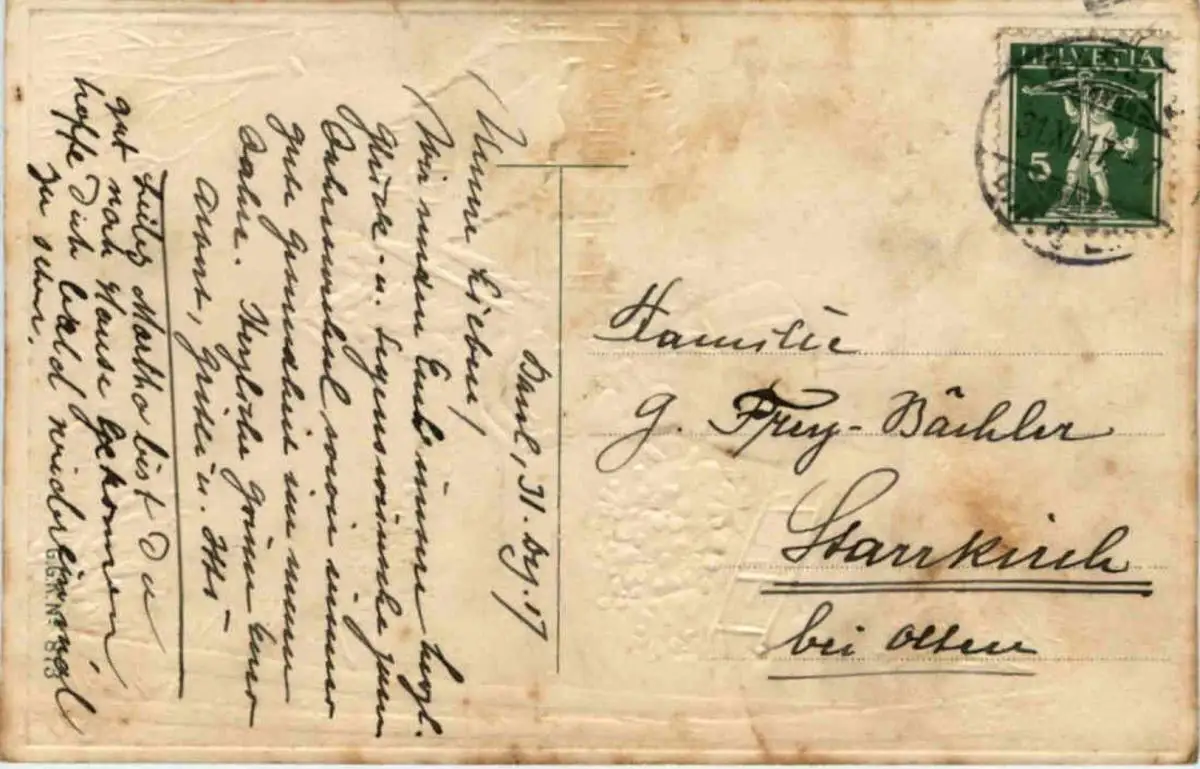 HELVETIA
5
Familie
G. Frey-Bächler
Starrkirch
bei Olten
Basel, 31. Dez. 17
Meine Lieben,
Wir senden Euch immer herzl.
Glück- u. Segenswünsche zum
Jahreswechsel, sowie immer
gute Gesundheit im neuen
Jahre. Herzliche Grüsse Euer
u.
Liebes Martha bist Du
gut nach Hause gekomen
hoffe Dich bald wieder einmal
zu sehen.
G.G.K. No 813